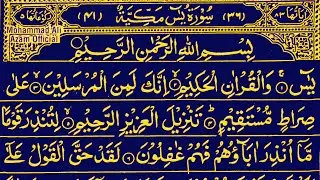 اٰیاتها ۸۳ (۳۶) سُوْرَةُ یٰسٓ مَکِّیَّةٌ (۴۱)
Mohammad Ali
Azam Official
بِسْمِ اللهِ الرَّحْمٰنِ الرَّحِیْمِ
یٰسٓ ۚ وَالْقُرْاٰنِ الْحَکِیْمِ ۙ اِنَّكَ لَمِنَ الْمُرْسَلِیْنَ ۙ عَلٰی
صِرَاطٍ مُّسْتَقِیْمٍ ؕ تَنْزِیْلَ الْعَزِیْزِ الرَّحِیْمِ ۙ لِتُنْذِرَ قَوْمًا
مَّاۤ اُنْذِرَ اٰبَآؤُهُمْ فَهُمْ غٰفِلُوْنَ لَقَدْ حَقَّ الْقَوْلُ عَلٰۤی